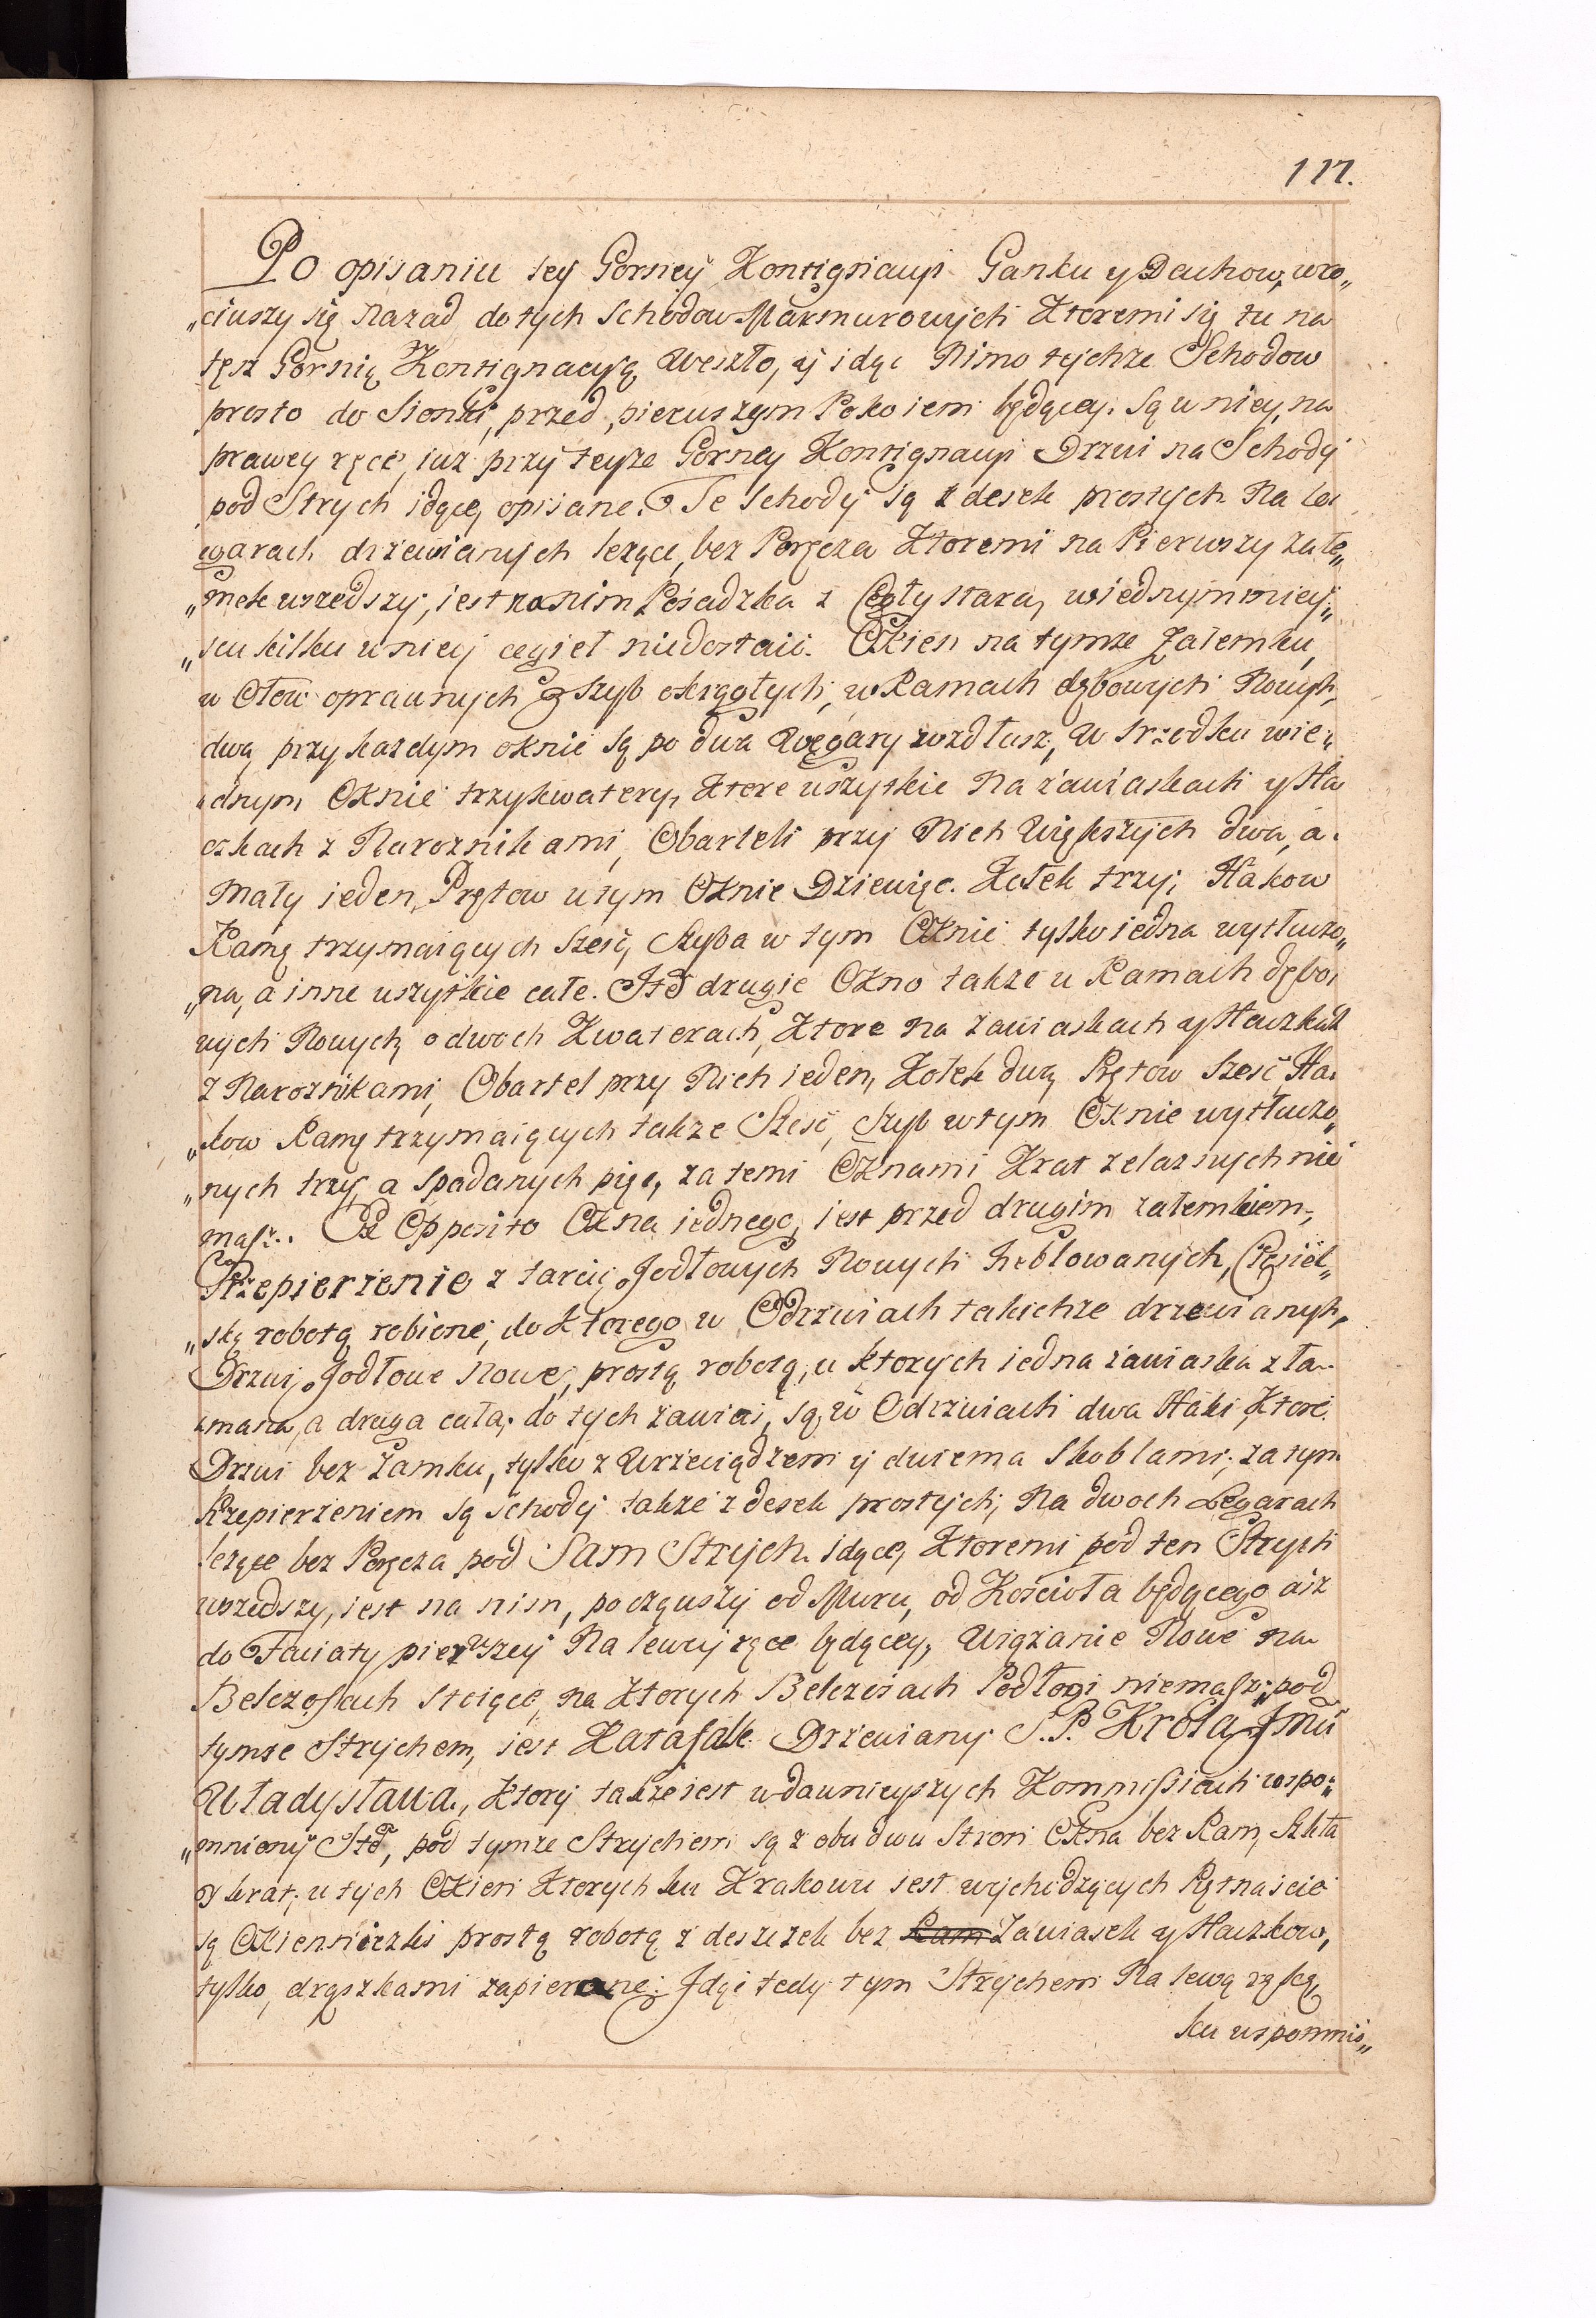 117.
Po opisaniu tey Gorney Kontignacyi Ganku y Dachow, wro„
„ciuszy się Nazad do tych Schodow Marmurowych Ktoremi się tu na
tęsz Gornię Kontignacyią weszło, y idąc Mimo tychże Schodow
prosto do Sionki, przed pierwszym Pokoiem będącey. Są w niey na
prawey ręce, iuz przy teyże Gorney Kontignacyi Drzwi na Schody
pod Strych idące, opisane. Te Schody są z desek prostych Na Le„
garach drzewianych leżące, bez Poręcza Ktoremi na Pierwszy załe„
„mek wszedszy, iest na nim Posadzka z Cegły stara, wiednym miey„
„scu kilku w niey cegieł niedostaie. Okien na tymże Załemku,
w Ołow oprawnych z szyb okrągłych, w Ramach dębowych Nowych,
dwa, przy każdym oknie są po dwa Węgary wzdłusz, w srzodku wie„
„dnym Oknie trzy kwatery, Ktore wszytkie Na zawiaskach y Ha„
czkach z Naroznikami, Obarteli przy Nich Większych dwa, a
Mały ieden, Prętow w tym Oknie Dziewięc. Kołek trzy, Hakow
Ramę trzymaiących sześć, Szyba w tym Oknie tylko iedna wytłuczo„
„na, a inne wszytkie całe. Itd drugie Okno także w Ramach dębo„
wych Nowych, o dwoch Kwaterach, Ktore na zawiaskach y Haczkach
z Naroznikami, Obartel przy Nich ieden, Kołek dwa, Prętow Sześć, Ha„
„kow Ramę trzymaiących także Sześć, Szyb w tym Oknie wytłuczo„
„nych trzy, a spadanych pięc, za temi Oknami Krat żelaznych nie
masz. Ex Opposito Okna iednego, iest przed drugim załemkiem,
Przepierzenie z tarcic Jodłowych Nowych heblowanych, Ciesiel„
„ską robotą robione, do Ktorego w Odrzwiach takichże drzewianych,
Drzwi Jodłowe Nowe, prostą robotą, u ktorych iedna zawiaska zła„
„mana, a druga cała, do tych zawias, są w Odrzwiach dwa Haki, Ktore
Drzwi bez Zamku, tylko z Wrzeciądzem y dwiema Skoblami; za tym
Przepierzeniem są schody także z desek prostych, Na dwoch Legarach
leżące bez Poręcza pod Sam Strych idące, Ktoremi pod ten Strych
wszedszy, iest na nim, począwszy od Muru, od Kościoła będącego aiz
do Faciaty pierwszey Na lewey ręce będącey, Wiązanie Nowe na
Belczosach stoiące, na Ktorych Belczosach Podłogi niemasz; pod
tymże Strychem, iest Katafalk Drzewiany S.P. Krola Jmci
Władysława, Ktory także iest w dawnieyszych Kommissiach wspo„
„mniony Itd, pod tymże Strychem są z obu dwu Stron Okna bez Ram, Szkła
y krat, u tych Okien Ktorych ku Krakowu iest wychodzących Piętnaście
są Okienniczki prostą robotą z deszczek bez Ram Zawiasek y Haczkow,
tylko, drązkami zapierane. Idąc tedy tym Strychem Na lewą rękę,
ku wspomnio„